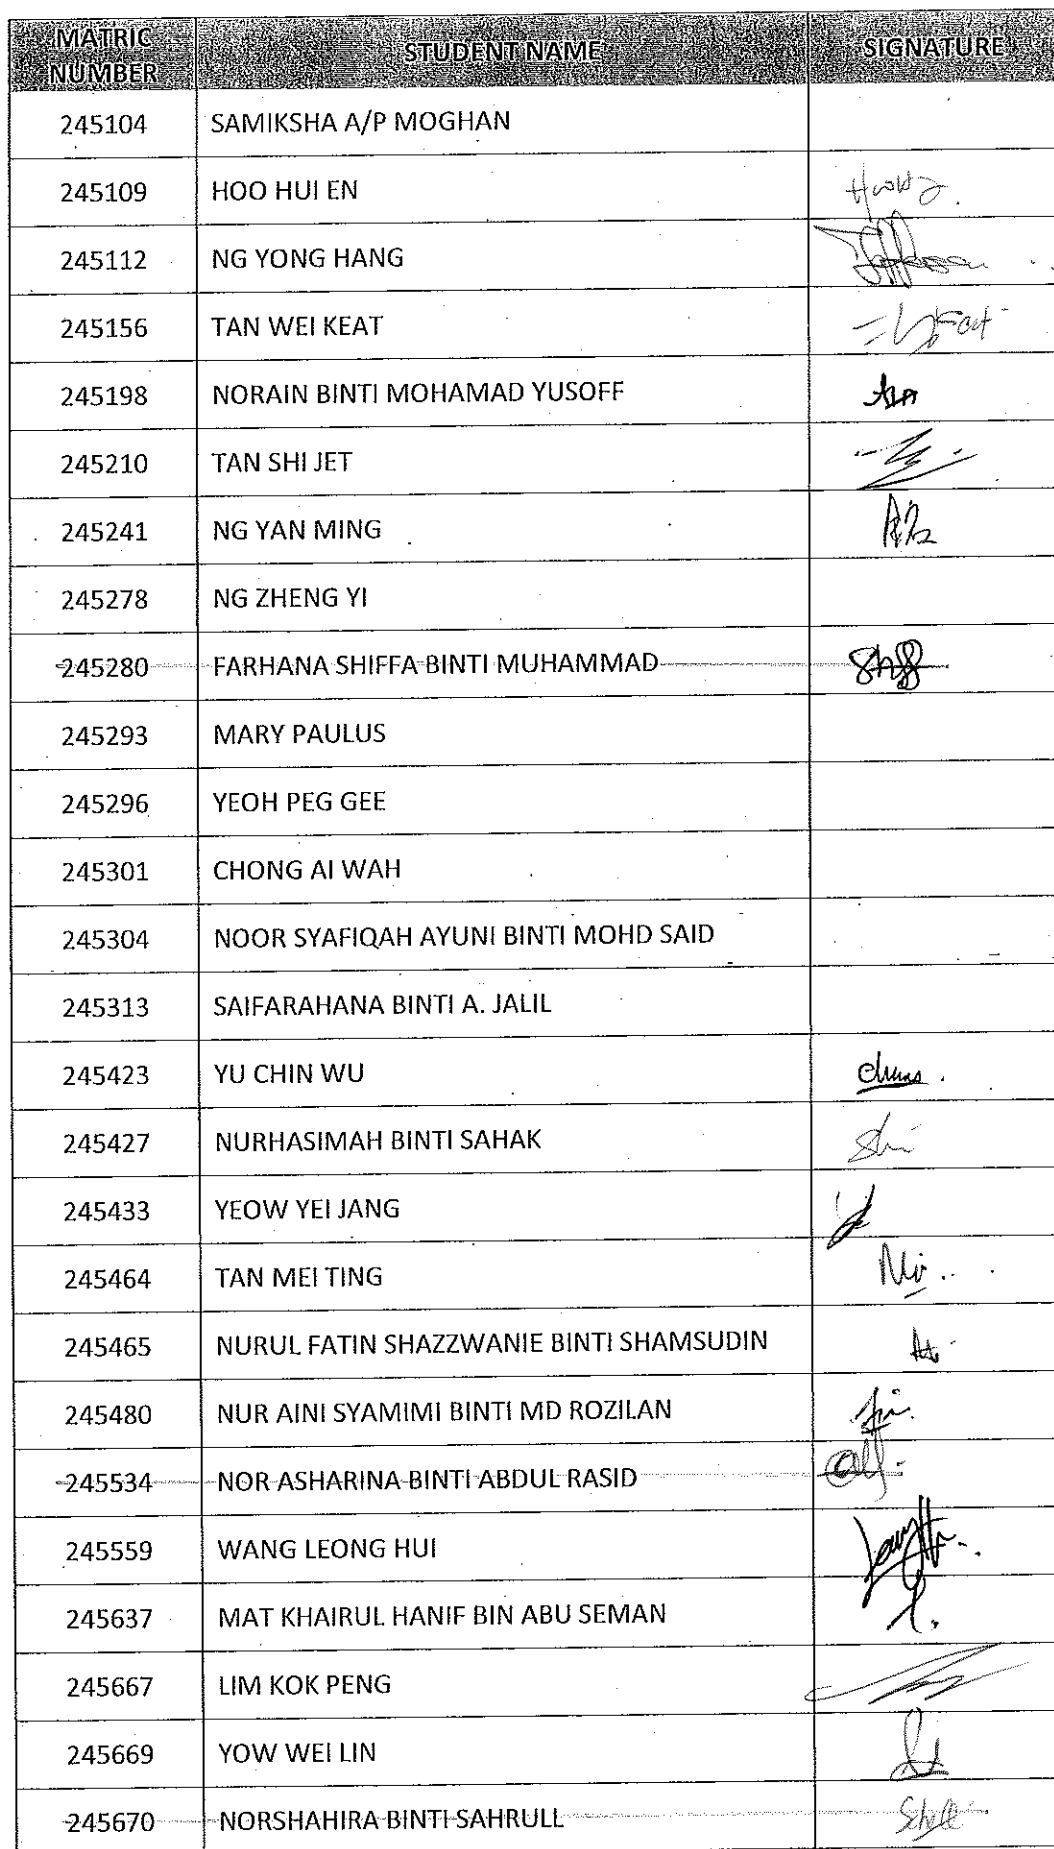 MATRIC NUMBER STUDENT NAME SIGNATURE
245104 SAMIKSHA A/P MOGHAN
245109 HOO HUI EN
245112 NG YONG HANG
245156 TAN WEI KEAT
245198 NORAIN BINTI MOHAMAD YUSOFF
245210 TAN SHI JET
245241 NG YAN MING
245278 NG ZHENG YI
245280 FARHANA SHIFFA BINTI MUHAMMAD
245293 MARY PAULUS
245296 YEOH PEG GEE
245301 CHONG AI WAH
245304 NOOR SYAFIQAH AYUNI BINTI MOHD SAID
245313 SAIFARAHANA BINTI A. JALIL
245423 YU CHIN WU
245427 NURHASIMAH BINTI SAHAK
245433 YEOW YEI JANG
245464 TAN MEI TING
245465 NURUL FATIN SHAZZWANIE BINTI SHAMSUDIN
245480 NUR AINI SYAMIMI BINTI MD ROZILAN
245534 NOR ASHARINA BINTI ABDUL RASID
245559 WANG LEONG HUI
245637 MAT KHAIRUL HANIF BIN ABU SEMAN
245667 LIM KOK PENG
245669 YOW WEI LIN
245670 NORSHAHIRA BINTI SAHRULL